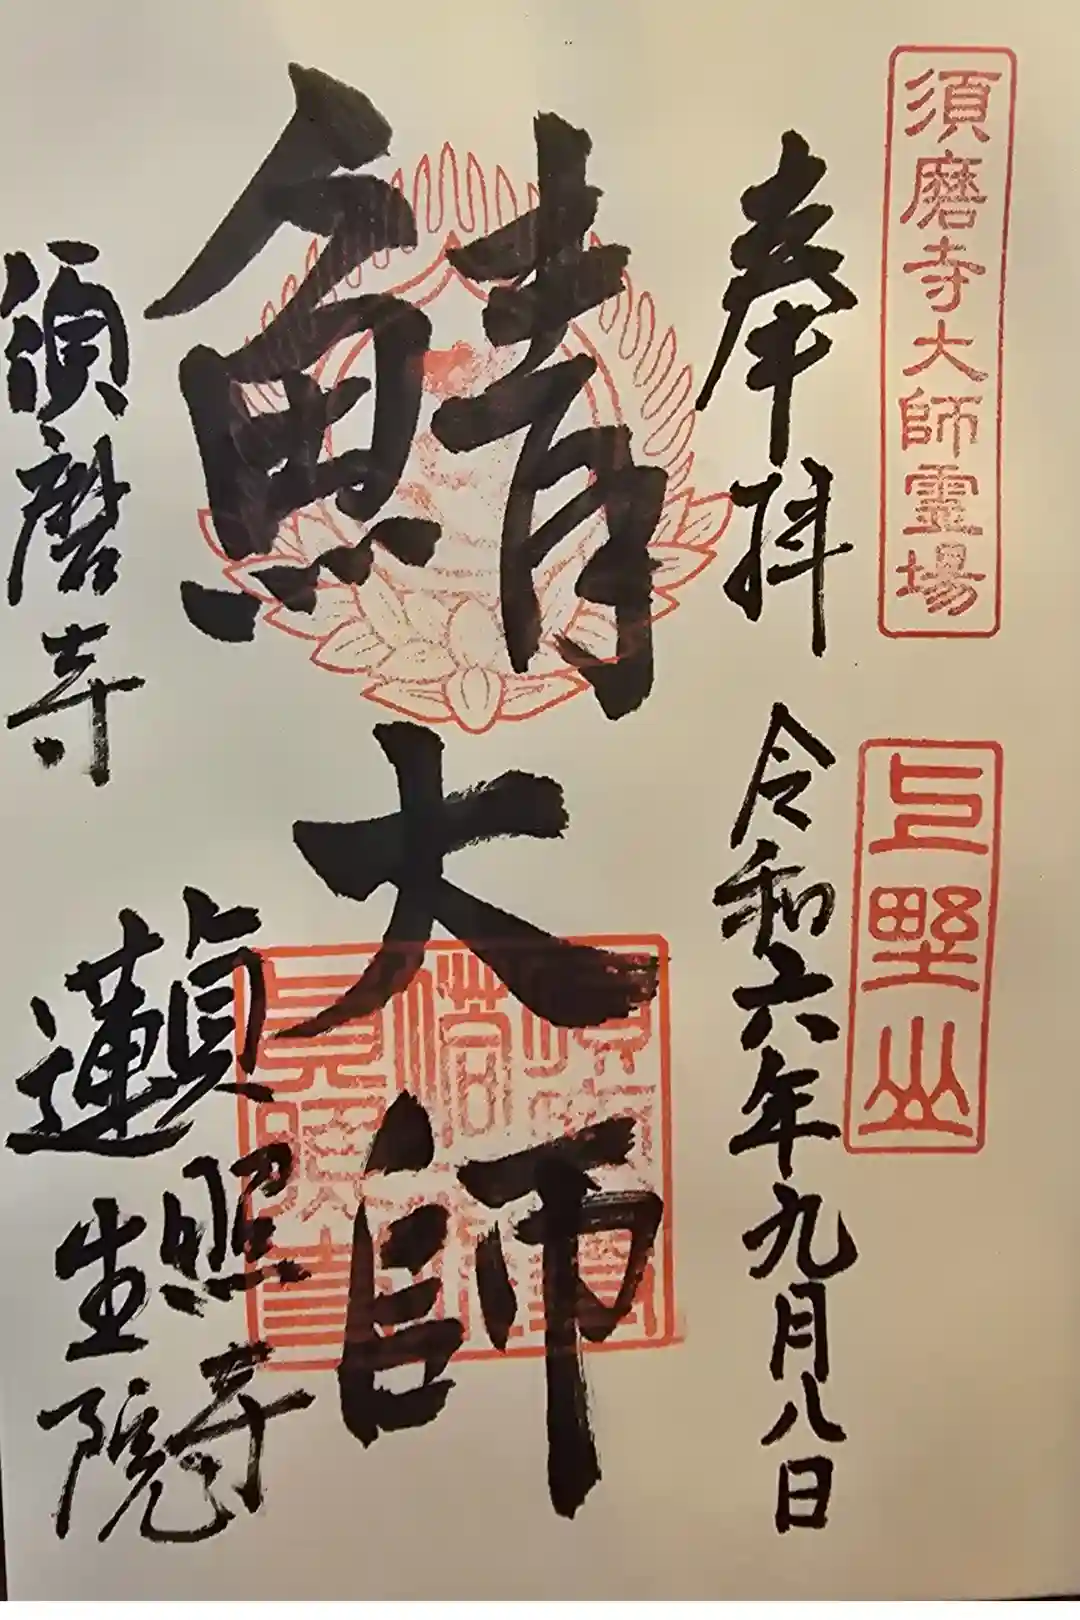 須磨寺大師霊場
上野山
奉拝 令和六年九月八日
鯖大師
照寺
須磨寺 蓮生院